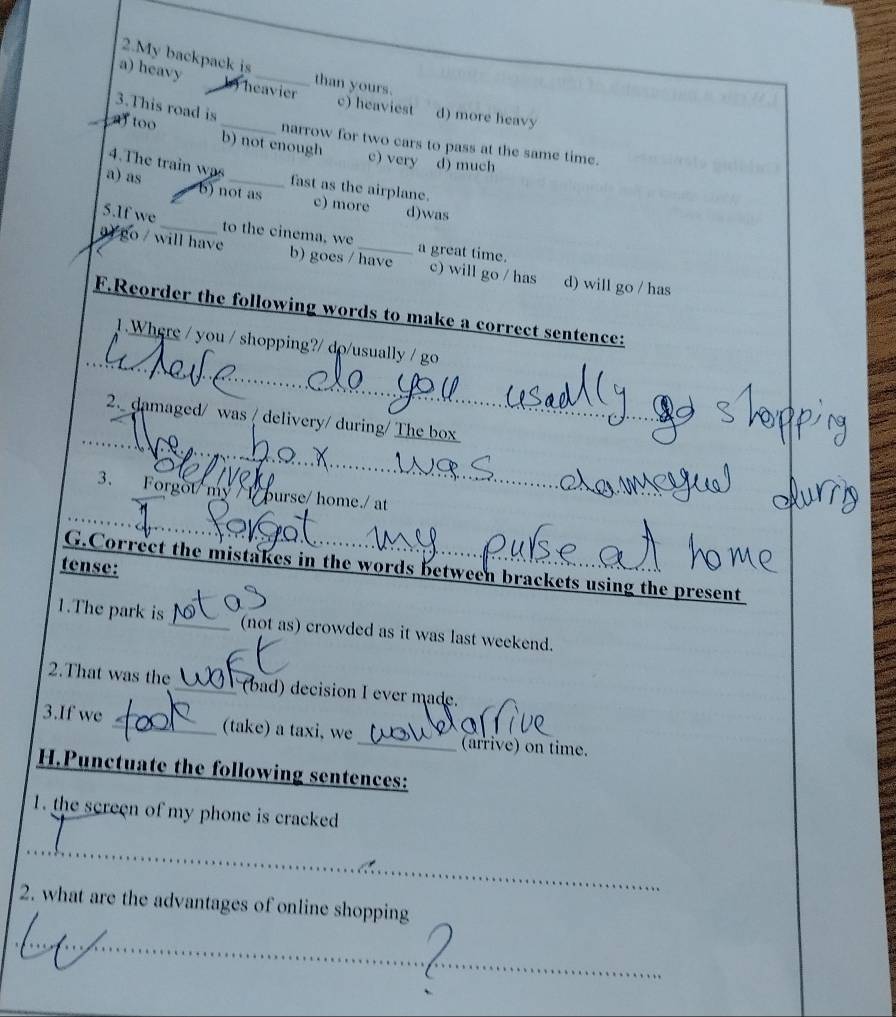 2.My backpack is ______ than yours.
a) heavy b) heavier c) heaviest d) more heavy
3.This road is ______ narrow for two cars to pass at the same time.
a) too b) not enough c) very d) much
4.The train was ______ fast as the airplane.
a) as b) not as c) more d)was
5.If we ______ to the cinema, we ______ a great time.
a) go / will have b) goes / have c) will go / has d) will go / has
F.Reorder the following words to make a correct sentence:
1.Where / you / shopping?/ do/usually / go
Where do you usually go shopping
2. damaged/ was / delivery/ during/ The box
The box was damagued during
delivery
3. Forgot/ my / I /purse/ home./ at
I forgot my purse at home
G.Correct the mistakes in the words between brackets using the present
tense:
1.The park is not as (not as) crowded as it was last weekend.
2.That was the worst (bad) decision I ever made.
3.If we took (take) a taxi, we would arrive (arrive) on time.
H.Punctuate the following sentences:
1. the screen of my phone is cracked
T .
2. what are the advantages of online shopping
W ?